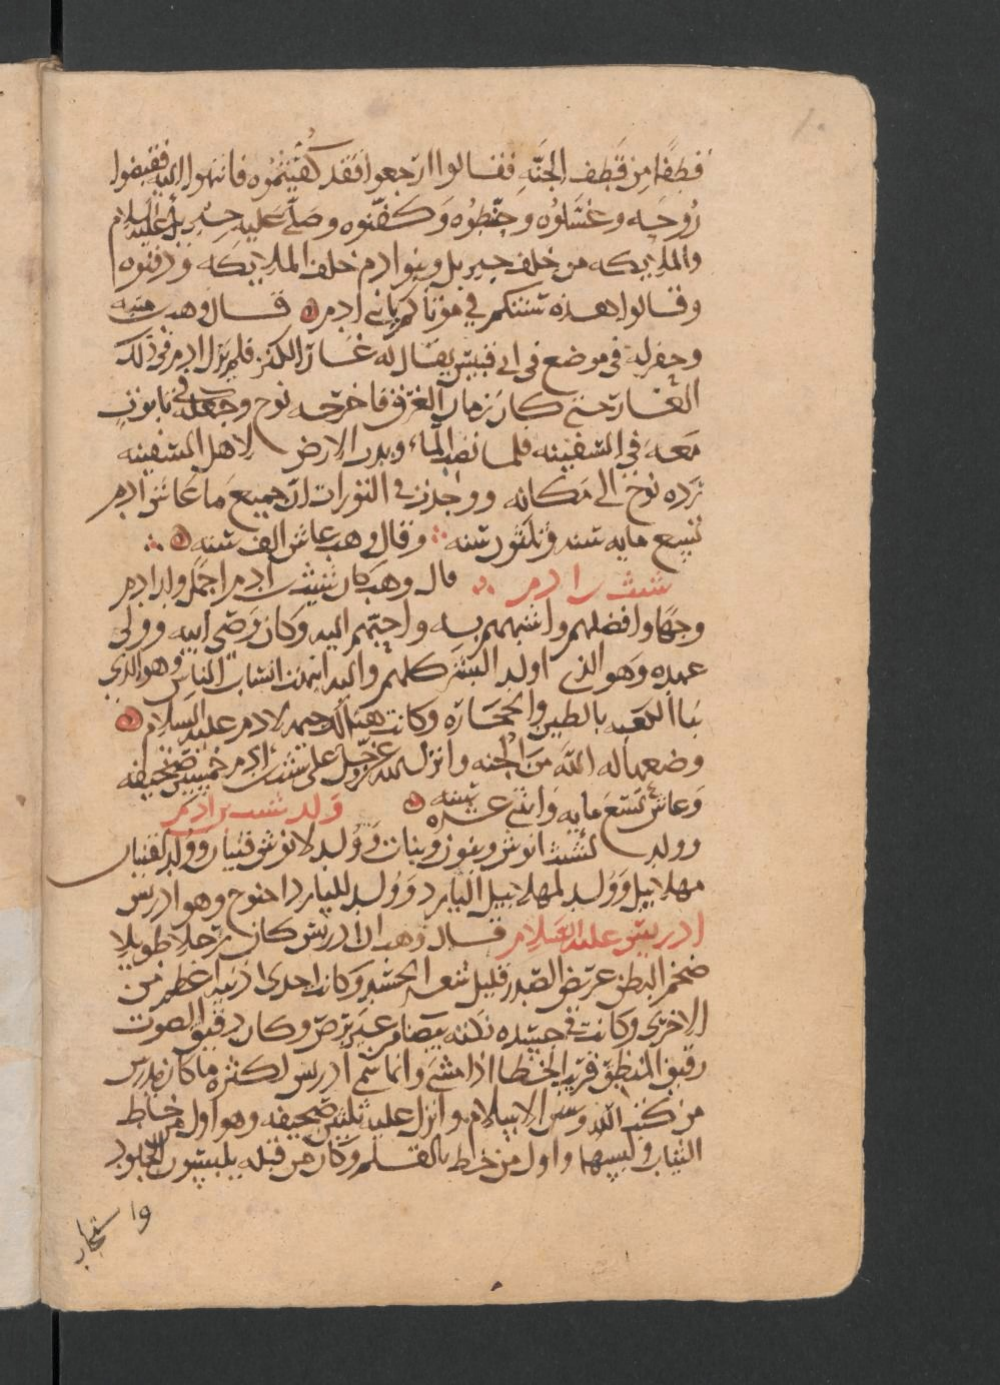 قطفا من قطف الجنة فقالوا ارجعوا فقد كفيتموه فانتهوا اليه فقبضوا
روحه وغسلوه وحنطوه وكفنوه وصلى عليه جبريل عليه السلام
والملايكه من خلف جبريل وبنوا ادم خلف الملايكه ودفنوه
وقالوا هذه سنتكم في موتاكم يا بني ادم قال وهب
وحفر له في موضع في ابي قبيس يقال له غار الكنز فلم يزل ادم في ذلك
الغار حتى كان زمان الغرق فاخرجه نوح وجعله في تابوت
معه في السفينه فلما نضب الماء وبدت الارض لاهل السفينه
رده نوح الى مكانه ووجدت في التورات ان جميع ما عاش ادم
تسع مايه سنه وثلثون سنه وقال وهب عاش الف سنه
شيث بن ادم قال وهب كان شيث بن ادم اجمل ولد ادم
وجها وافضلهم واشبههم به واحبهم اليه وكان وصي ابيه وولي
عهده وهو الذي اولد البشر كلهم واليه انتهت انساب الناس وهو الذي
بنا الكعبه بالطين والحجاره وكانت هناك خيمه لادم عليه السلام
وضعها له الله من الجنه وانزل الله عز وجل على شيث بن ادم خمسين صحيفه
وعاش تسع مايه واثنتي عشره سنه ولد شيث بن ادم
وولد لشيث انوش وبنون وبنات وولد لانوش قنيان وولد لقنيان
مهلاييل وولد لمهلاييل اليارد وولد لليارد اخنوخ وهو ادريس
ادريس عليه السلام قال وهب ان ادريس كان رجلا طويلا
ضخم البطن عريض الصدر قليل شعر الجسد وكانت احدى اذنيه اعظم من
الاخرى وكانت في جسده نكته بيضا من غير برص وكان رقيق الصوت
رقيق المنطق قريب الخطا اذا مشى وانما سمي ادريس لكثره ما كان يدرس
من كتب الله وسنن الاسلام وانزل عليه ثلثين صحيفه وهو اول من خاط
الثياب ولبسها واول من خط بالقلم وكان من قبله يلبسون الجلود